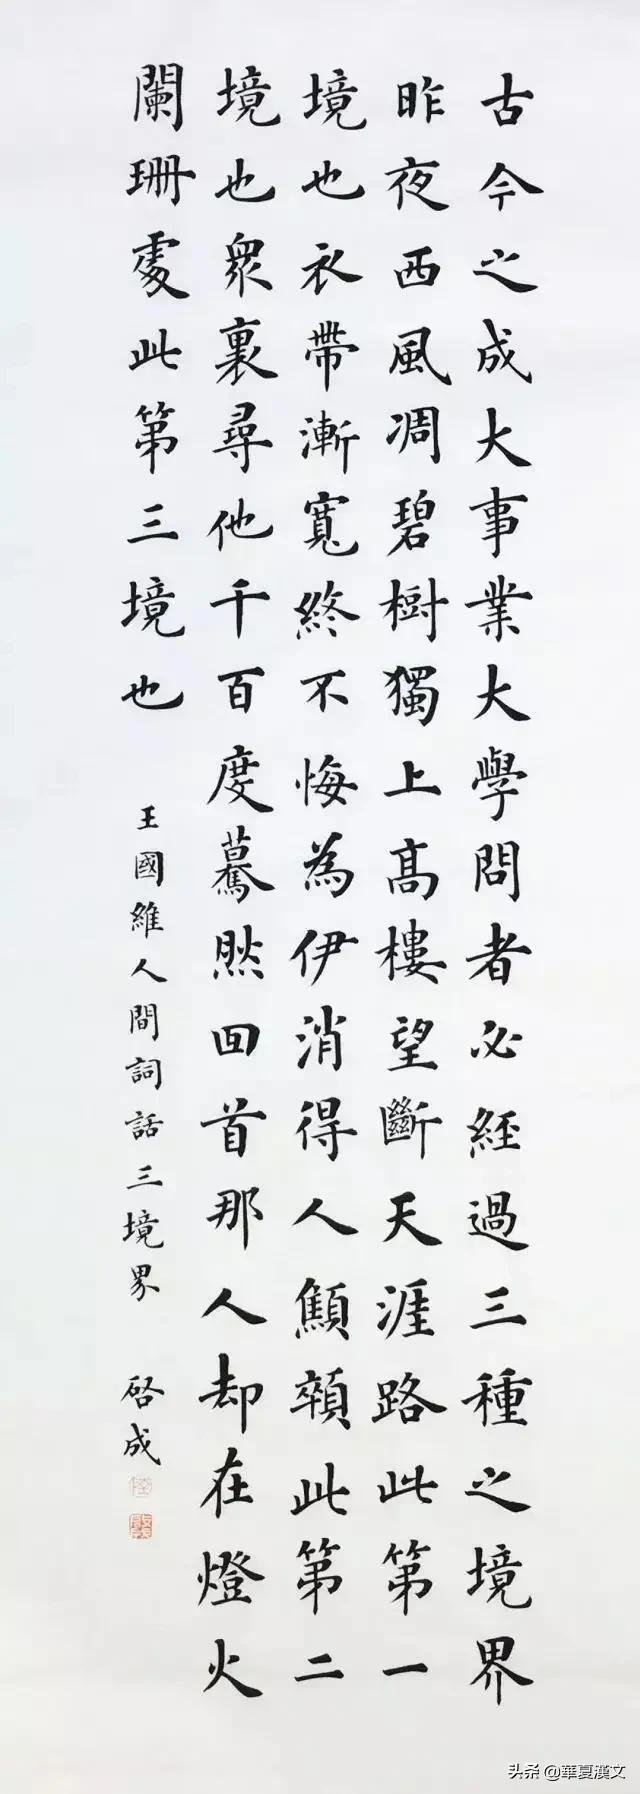 古今之成大事業大學問者必經過三種之境界
昨夜西風凋碧樹獨上高樓望斷天涯路此第一
境也衣帶漸寬終不悔為伊消得人顦顇此第二
境也衆裏尋他千百度驀然回首那人却在燈火
闌珊處此第三境也
王國維人間詞話三境界 啓成
头条 @華夏漢文